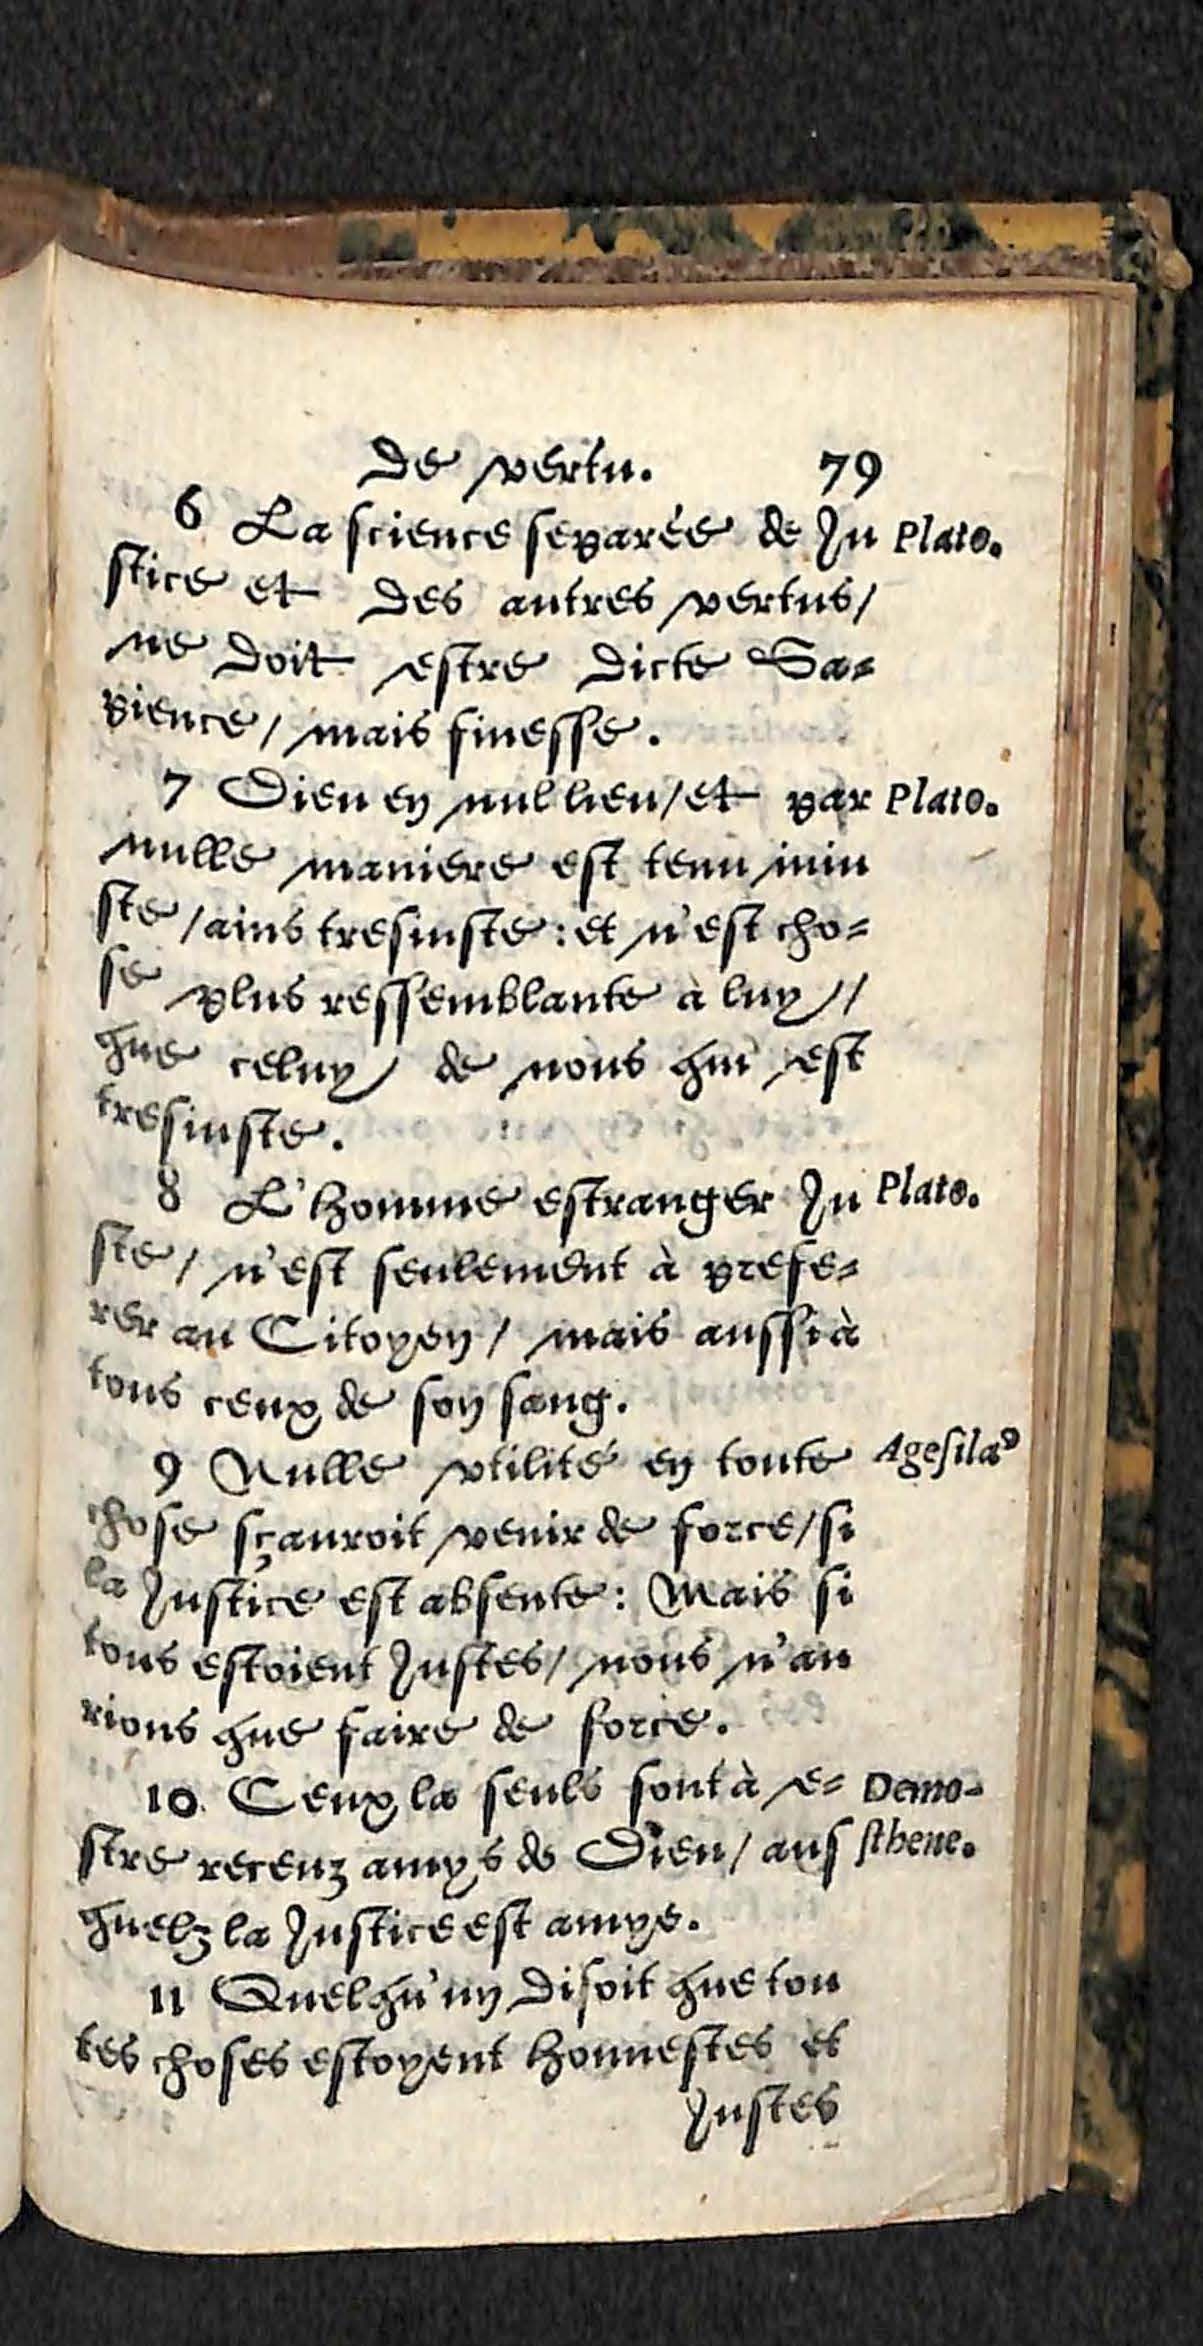 De vertu. 79
6 La science separée de Iu Plato.
stice et des autres vertus/
ne doit estre dicte Sa-
pience/ mais finesse.
7 Dieu en nul lieu/et par Plato.
nulle maniere est tenu iniu
ste/ains tresiuste: et n'est cho-
se plus ressemblante à luy//
que celuy de nous qui est
tresiuste.
8 L'homme estranger Iu Plato.
ste/ n'est seulement à prefe-
rer au Citoyen/ mais aussi à
tous ceux de son sang.
9 Nulle vtilité en toute Agesilaꝰ
chose sçauroit venir de force/si
la Iustice est absente: Mais si
tous estoient Iustes/ nous n'au
rions que faire de force.
10. Ceux la seuls sont à e- Demo-
stre receuz amys de Dieu/ aus sthene.
quelz la Iustice est amye.
11 Quelqu'un disoit que tou
tes choses estoyent honnestes et
Iustes